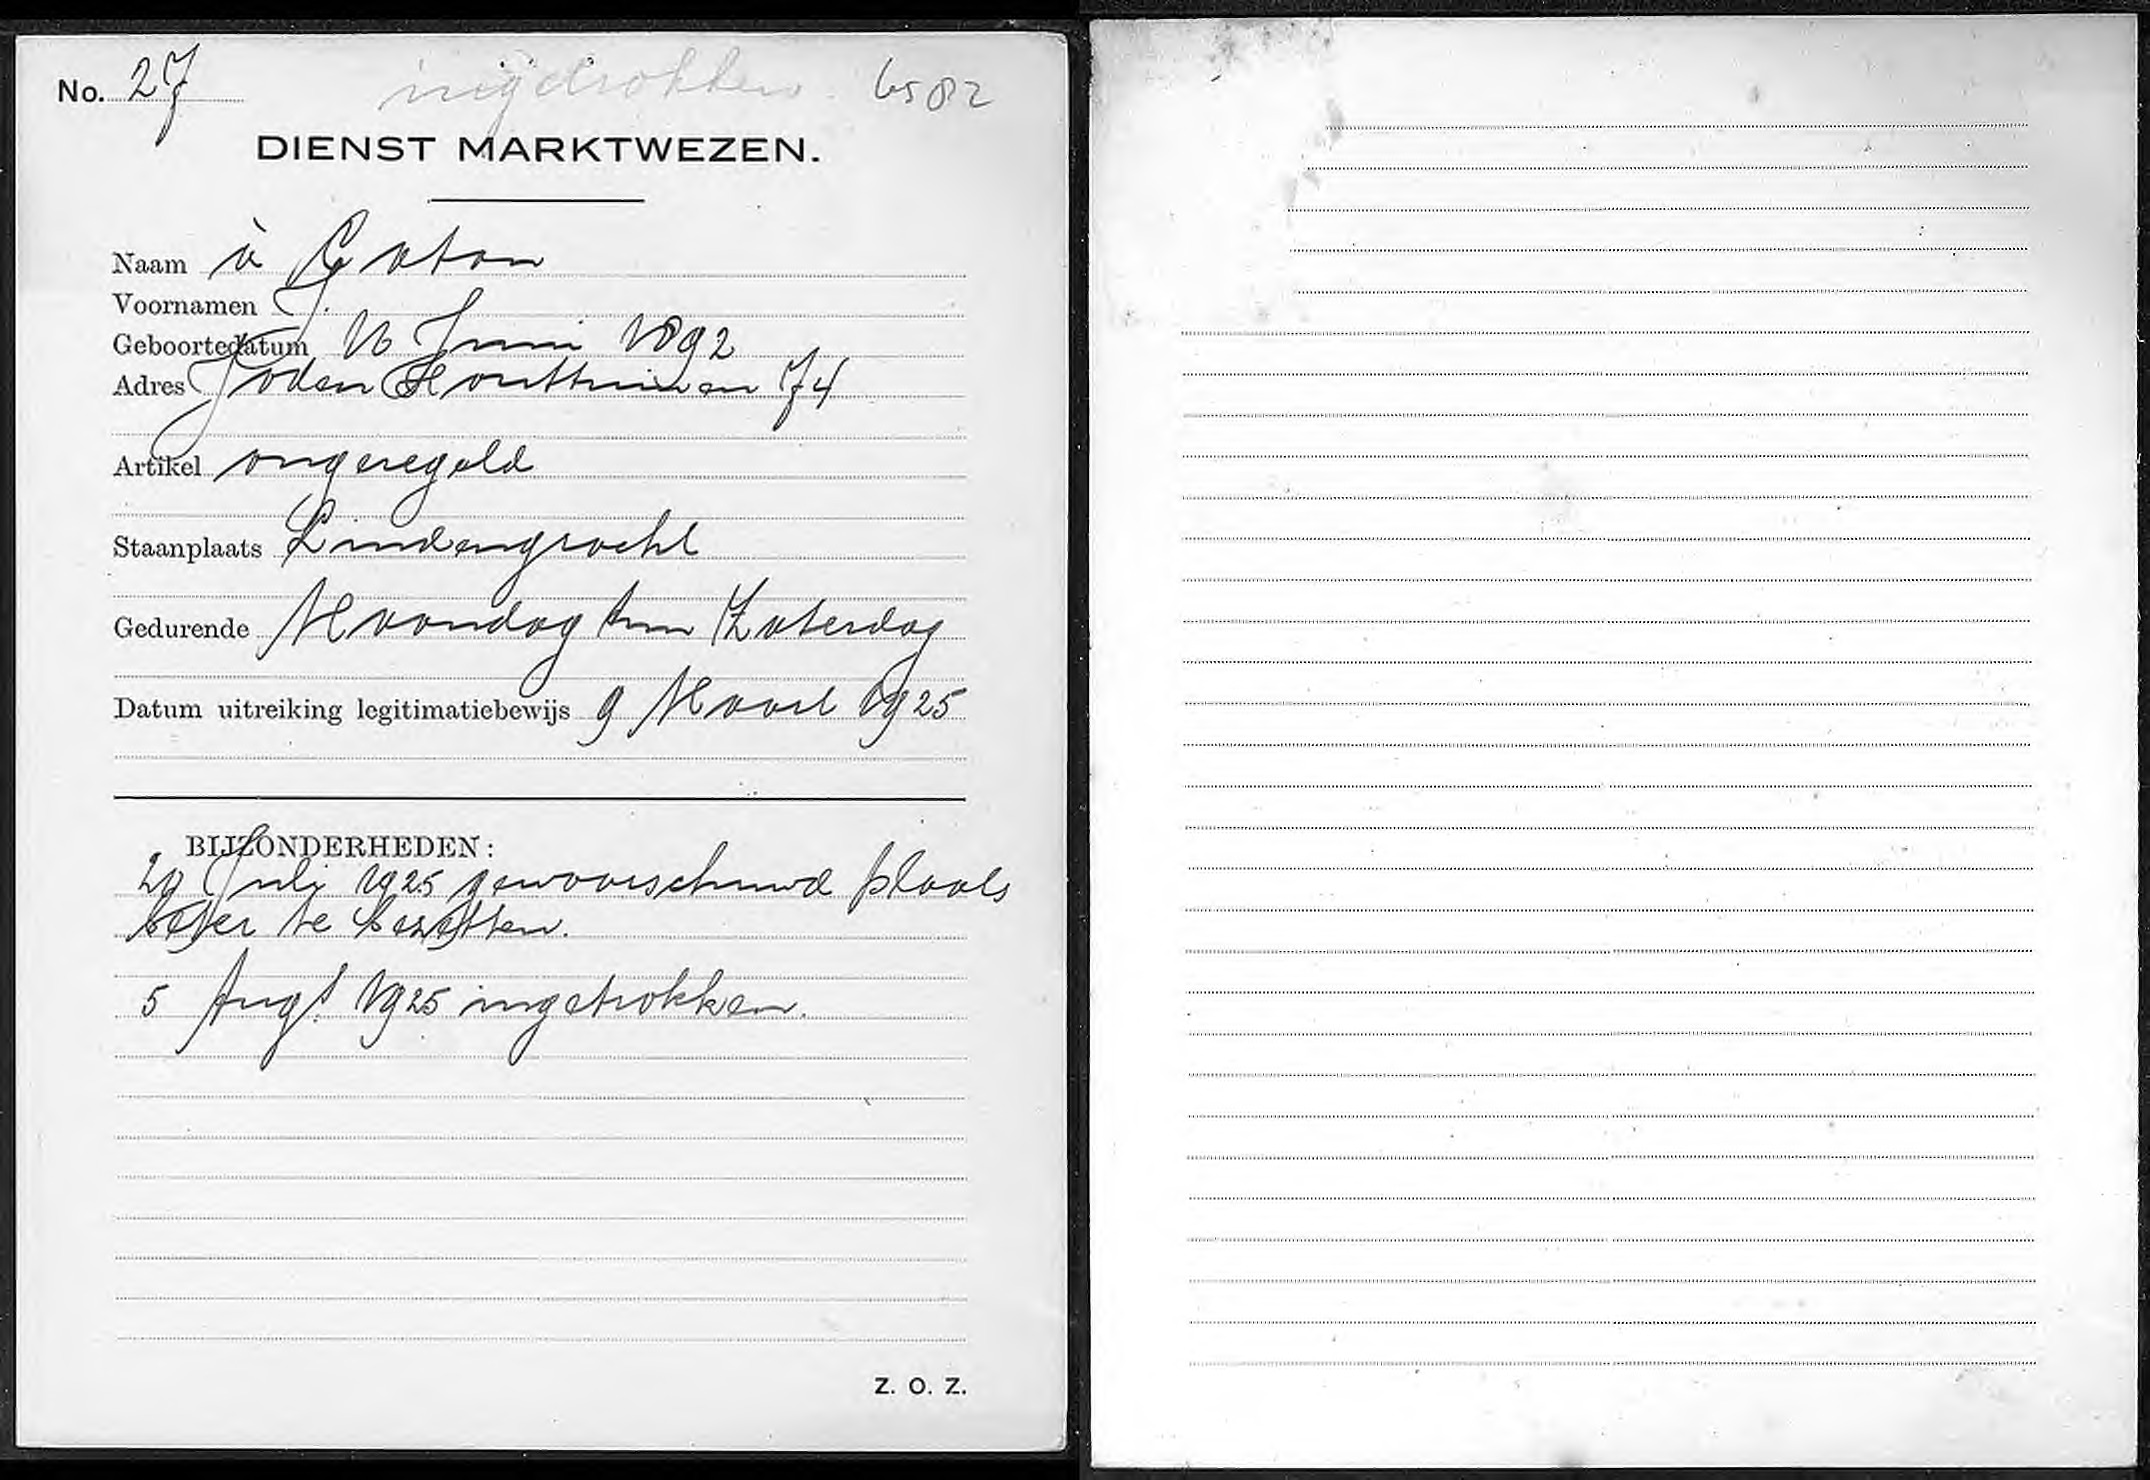 No. 27 ingetrokken. 6582
DIENST MARKTWEZEN.
Naam à Cohen
Voornamen J.
Geboortedatum 16 Juni 1892
Adres Joden Houttuinen 74
Artikel ongeregeld
Staanplaats Lindengracht
Gedurende Maandag t/m Zaterdag
Datum uitreiking legitimatiebewijs 9 Maart 1925
BIJZONDERHEDEN:
Juli 1925 gewaarschuwd plaats
beter te bezetten.
5 Augt. 1925 ingetrokken.
Z. O. Z.